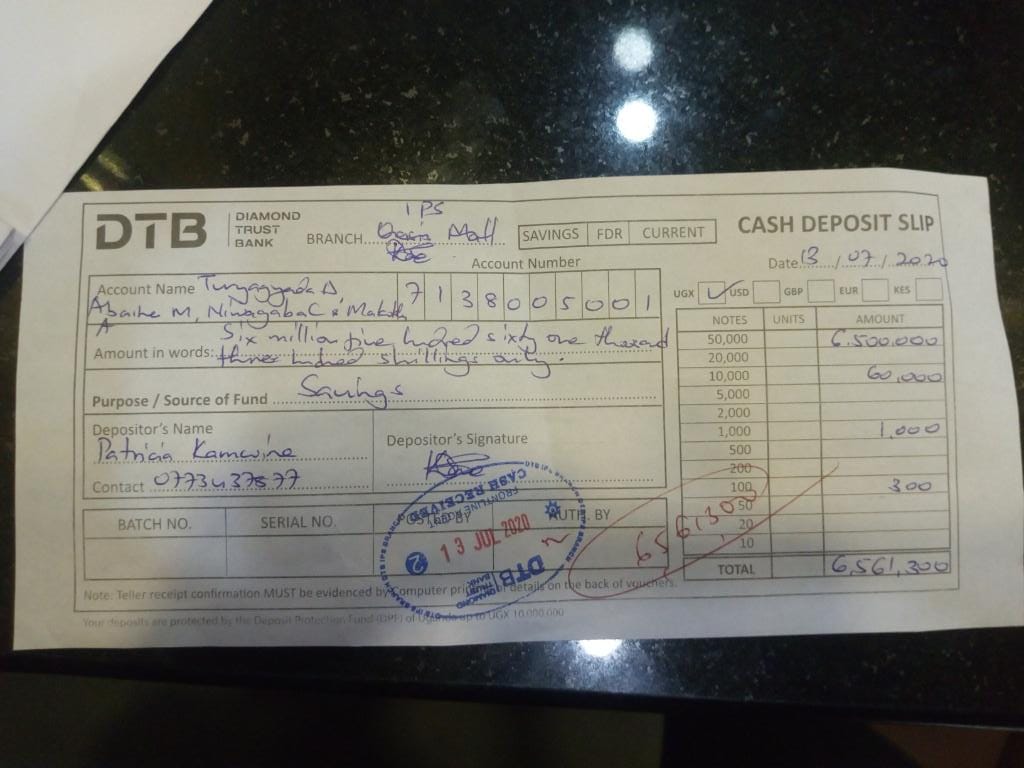 DTB
DIAMOND
TRUST
BANK
BRANCH
IPS
Mall
SAVINGS FDR CURRENT
CASH DEPOSIT SLIP
Date 13/07/2020
Account Number
7138005001
Account Name
M, Niwagaba C &
A
UGX USD GBP EUR KES
Amount in words: Six million five hundred sixty one thousand
three hundred shillings only.
Purpose / Source of Fund Savings
Depositor's Name
Patricia
Contact
Depositor's Signature
NOTES UNITS AMOUNT
50,000 6.500.000
20,000
10,000 60,000
5,000
2,000
1,000 1,000
500
200
100 300
50
20
10
TOTAL 6,561,300
6561300
BATCH NO. SERIAL NO. AUTH. BY
CASH RECEIVED
13 JUL 2020
2
DTB
DIAMOND
TRUST
BANK
Note: Teller receipt confirmation MUST be evidenced by Computer details on the back of vouchers.
Your deposits are protected by the Deposit Protection Fund (DPF) of Uganda up to UGX 10,000,000